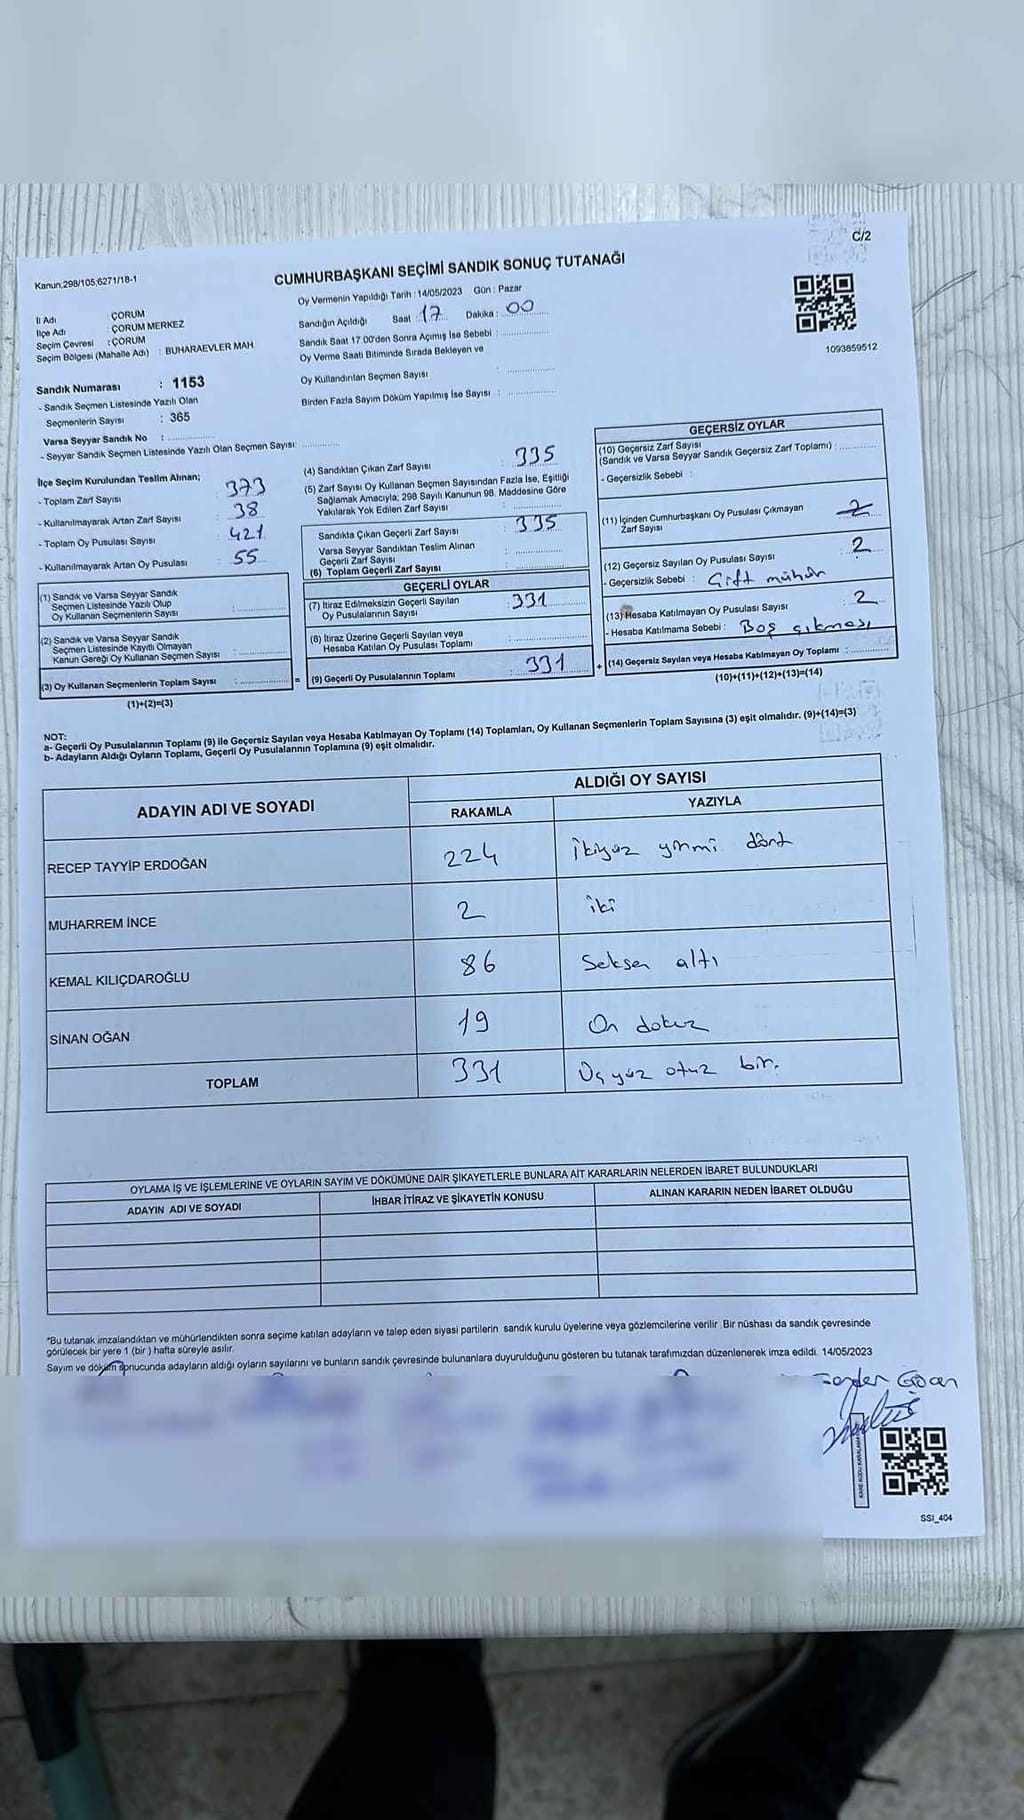 C/2
Kanun.298/105;6271/18-1
CUMHURBAŞKANI SEÇİMİ SANDIK SONUÇ TUTANAĞI
Oy Vermenin Yapıldığı Tarih : 14/05/2023 Gün : Pazar
İl Adı : ÇORUM
İlçe Adı : ÇORUM MERKEZ
Seçim Çevresi : ÇORUM
Seçim Bölgesi (Mahalle Adı) : BUHARAEVLER MAH.
Sandığın Açıldığı Saat : 17 Dakika : 00
Sandık Saat 17.00'den Sonra Açımış İse Sebebi :
Oy Verme Saati Bitiminde Sırada Bekleyen ve
Oy Kullandırılan Seçmen Sayısı :
Birden Fazla Sayım Döküm Yapılmış İse Sayısı :
1093859512
Sandık Numarası : 1153
- Sandık Seçmen Listesinde Yazılı Olan
Seçmenlerin Sayısı : 365
Varsa Seyyar Sandık No :
- Seyyar Sandık Seçmen Listesinde Yazılı Olan Seçmen Sayısı:
İlçe Seçim Kurulundan Teslim Alınan;
- Toplam Zarf Sayısı : 373
- Kullanılmayarak Artan Zarf Sayısı : 38
- Toplam Oy Pusulası Sayısı : 421
- Kullanılmayarak Artan Oy Pusulası : 55
(1) Sandık ve Varsa Seyyar Sandık
Seçmen Listesinde Yazılı Olup
Oy Kullanan Seçmenlerin Sayısı :
(2) Sandık ve Varsa Seyyar Sandık
Seçmen Listesinde Kayıtlı Olmayan
Kanun Gereği Oy Kullanan Seçmen Sayısı :
(3) Oy Kullanan Seçmenlerin Toplam Sayısı :
(1)+(2)=(3)
(4) Sandıktan Çıkan Zarf Sayısı : 335
(5) Zarf Sayısı Oy Kullanan Seçmen Sayısından Fazla İse, Eşitliği
Sağlamak Amacıyla; 298 Sayılı Kanunun 98. Maddesine Göre
Yakılarak Yok Edilen Zarf Sayısı :
Sandıkta Çıkan Geçerli Zarf Sayısı : 335
Varsa Seyyar Sandıktan Teslim Alınan
Geçerli Zarf Sayısı :
(6) Toplam Geçerli Zarf Sayısı :
GEÇERLİ OYLAR
(7) İtiraz Edilmeksizin Geçerli Sayılan
Oy Pusulalarının Sayısı : 331
(8) İtiraz Üzerine Geçerli Sayılan veya
Hesaba Katılan Oy Pusulası Toplamı :
= (9) Geçerli Oy Pusulalarının Toplamı : 331
GEÇERSİZ OYLAR
(10) Geçersiz Zarf Sayısı
(Sandık ve Varsa Seyyar Sandık Geçersiz Zarf Toplamı) :
- Geçersizlik Sebebi :
(11) İçinden Cumhurbaşkanı Oy Pusulası Çıkmayan
Zarf Sayısı : 2
(12) Geçersiz Sayılan Oy Pusulası Sayısı : 2
- Geçersizlik Sebebi : Çift mühür
(13) Hesaba Katılmayan Oy Pusulası Sayısı : 2
- Hesaba Katılmama Sebebi : Boş çıkması
+ (14) Geçersiz Sayılan veya Hesaba Katılmayan Oy Toplamı :
(10)+(11)+(12)+(13)=(14)
NOT:
a- Geçerli Oy Pusulalarının Toplamı (9) ile Geçersiz Sayılan veya Hesaba Katılmayan Oy Toplamı (14) Toplamları, Oy Kullanan Seçmenlerin Toplam Sayısına (3) eşit olmalıdır. (9)+(14)=(3)
b- Adayların Aldığı Oyların Toplamı, Geçerli Oy Pusulalarının Toplamına (9) eşit olmalıdır.
ADAYIN ADI VE SOYADI ALDIĞI OY SAYISI
RAKAMLA YAZIYLA
RECEP TAYYİP ERDOĞAN 224 İkiyüz yirmi dört
MUHARREM İNCE 2 iki
KEMAL KILIÇDAROĞLU 86 Seksen altı
SİNAN OĞAN 19 On dokuz
TOPLAM 331 Üç yüz otuz bir.
OYLAMA İŞ VE İŞLEMLERİNE VE OYLARIN SAYIM VE DÖKÜMÜNE DAİR ŞİKAYETLERLE BUNLARA AİT KARARLARIN NELERDEN İBARET BULUNDUKLARI
ADAYIN ADI VE SOYADI İHBAR İTİRAZ VE ŞİKAYETİN KONUSU ALINAN KARARIN NEDEN İBARET OLDUĞU
*Bu tutanak imzalandıktan ve mühürlendikten sonra seçime katılan adayların ve talep eden siyasi partilerin sandık kurulu üyelerine veya gözlemcilerine verilir. Bir nüshası da sandık çevresinde
görülecek bir yere 1 (bir) hafta süreyle asılır.
Sayım ve döküm sonucunda adayların aldığı oyların sayılarını ve bunların sandık çevresinde bulunanlara duyurulduğunu gösteren bu tutanak tarafımızdan düzenlenerek imza edildi. 14/05/2023
SSI_404